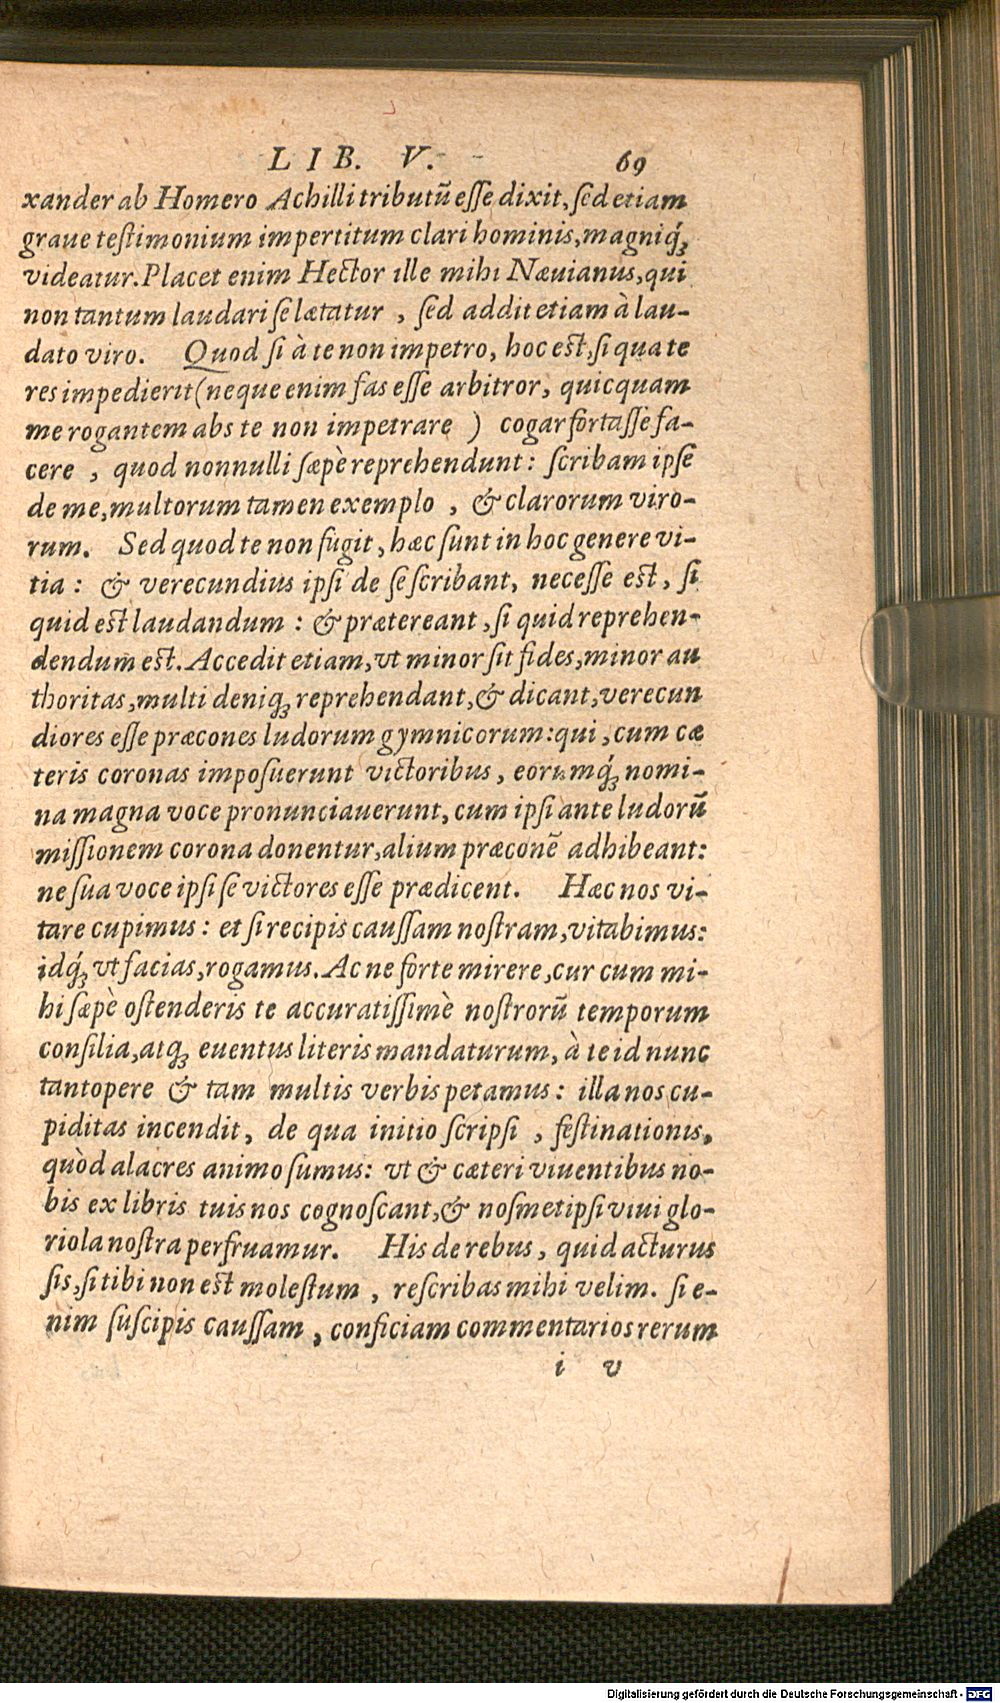 LIB. V. 69
xander ab Homero Achilli tributũ eſſe dixit, ſed etiam
graue teſtimonium impertitum clari hominis, magniq́;
videatur. Placet enim Hector ille mihi Næuianus, qui
non tantum laudari ſe lætatur, ſed addit etiam à lau-
dato viro. Quod ſi à te non impetro, hoc eſt, ſi qua te
res impedierit (neque enim fas eſſe arbitror, quicquam
me rogantem abs te non impetrare) cogar fortaſſe fa-
cere, quod nonnulli ſæpè reprehendunt: ſcribam ipſe
de me, multorum tamen exemplo, & clarorum viro-
rum. Sed quod te non fugit, hæc ſunt in hoc genere vi-
tia: & verecundius ipſi de ſe ſcribant, neceſſe eſt, ſi
quid eſt laudandum: & prætereant, ſi quid reprehen-
dendum eſt. Accedit etiam, vt minor ſit fides, minor au
thoritas, multi deniq; reprehendant, & dicant, verecun
diores eſſe præcones ludorum gymnicorum: qui, cum cæ
teris coronas impoſuerunt victoribus, eorumq́; nomi-
na magna voce pronunciauerunt, cum ipſi ante ludorũ
miſſionem corona donentur, alium præconẽ adhibeant:
ne ſua voce ipſi ſe victores eſſe prædicent. Hæc nos vi-
tare cupimus: et ſi recipis cauſſam noſtram, vitabimus:
idq́; vt facias, rogamus. Ac ne forte mirere, cur cum mi-
hi ſæpè oſtenderis te accuratiſſimè noſtrorũ temporum
conſilia, atq; euentus literis mandaturum, à te id nunc
tantopere & tam multis verbis petamus: illa nos cu-
piditas incendit, de qua initio ſcripſi, feſtinationis,
quòd alacres animo ſumus: vt & cæteri viuentibus no-
bis ex libris tuis nos cognoſcant, & noſmetipſi viui glo-
riola noſtra perfruamur. His de rebus, quid acturus
ſis, ſi tibi non eſt moleſtum, reſcribas mihi velim. ſi e-
nim ſuſcipis cauſſam, conficiam commentarios rerum
i v
Digitalisierung gefördert durch die Deutsche Forschungsgemeinschaft - DFG